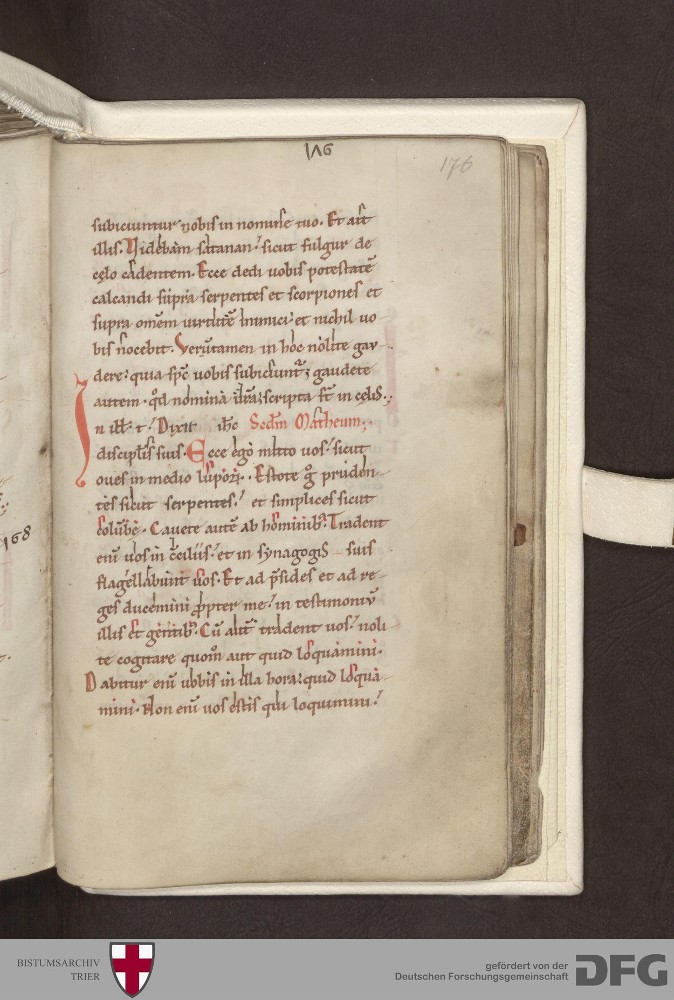 176
176
subiciuntur nobis in nomine tuo. Et ait
illis. Videbam satanan. sicut fulgur de
cęlo cadentem. Ecce dedi uobis potestatē
calcandi supra serpentes et scorpiones et
supra omēm uirtutē inimici. et nichil uo-
bis nocebit. Verūtamen in hoc nolite gau-
dere. quia spc̄ uobis subiciunt᷒. gaudete
autem. qd̄ nomina ur̄a scripta st̄ in cęlis.
In ill̄. t. Dixit ih̄c Secdm̄ Matheum.
discipl̄is suis. Ecce ego mitto uos. sicut
oues in medio lupoꝝ. Estote g̊ pruden-
tes sicut serpentes. et simplices sicut
colūbę. Cauete autē ab hominibꝰ. Tradent
enī uos in c̄ciliis. et in synagogis suis
flagellabunt uos. Et ad p̄sides et ad re-
ges ducemini ꝓpter me. in testimoniū
illis et gentibꝰ. Cū aut̄ tradent uos. noli-
te cogitare quom̄ aut quid loquamini.
Dabitur enī uobis in illa hora. quid loqua-
mini. Non enī uos estis qui loquimini.
168
BISTUMSARCHIV
TRIER
gefördert von der
Deutschen Forschungsgemeinschaft
DFG